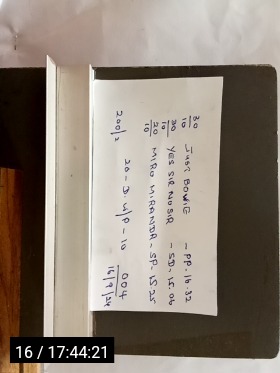 30/10 JUST BOWIE - PP. 16.32
30/10 YES SIR NO SIR - SD. 15.06
20/10 MIRO MIRANDA - SP. 15.25
200/2 20 - D. W/P - 10 004
16/9/24
16 / 17:44:21